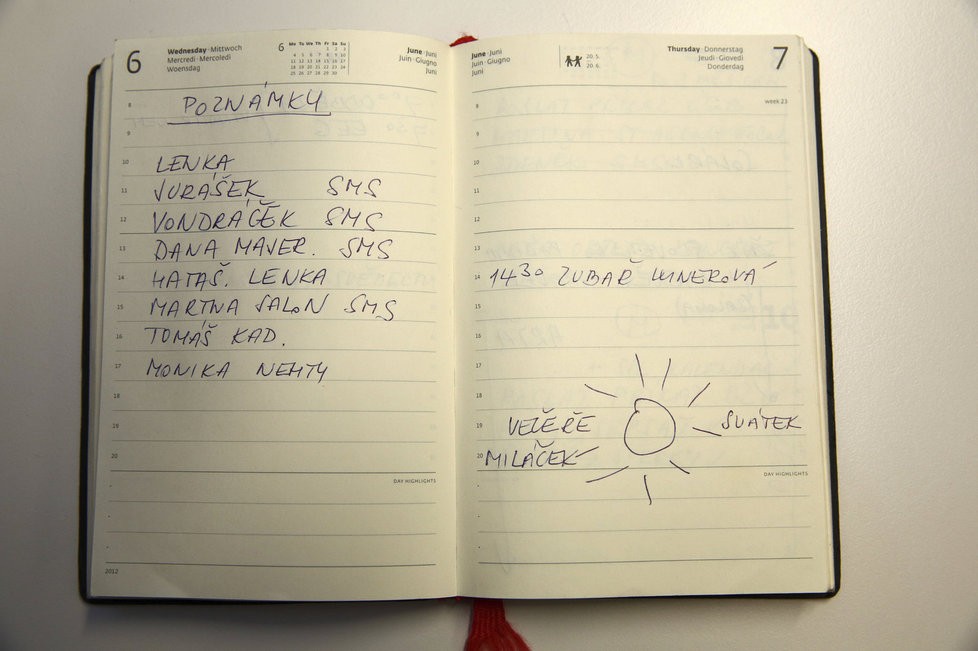 6
Wednesday · Mittwoch
Mercredi · Mercoledì
Woensdag
6 Mo Tu We Th Fr Sa Su
1 2 3
4 5 6 7 8 9 10
11 12 13 14 15 16 17
18 19 20 21 22 23 24
25 26 27 28 29 30
June · Juni
Juin · Giugno
Juni
8 POZNÁMKY
9
10 LENKA
11 JURAŠEK SMS
12 VONDRÁČEK SMS
13 DANA MAYER. SMS
14 MATAŠ. LENKA
15 MARTINA SALON SMS
16 TOMÁŠ KAD.
17 MONIKA NEHTY
18
19
20
DAY HIGHLIGHTS
2012
June · Juni
Juin · Giugno
Juni
20. 5.
20. 6.
Thursday · Donnerstag
Jeudi · Giovedì
Donderdag
7
week 23
8
9
10
11
12
13
14 14 30 ZUBAŘ
15
16
17
18
19 VEČEŘE SVÁTEK
20 MILÁČEK
DAY HIGHLIGHTS